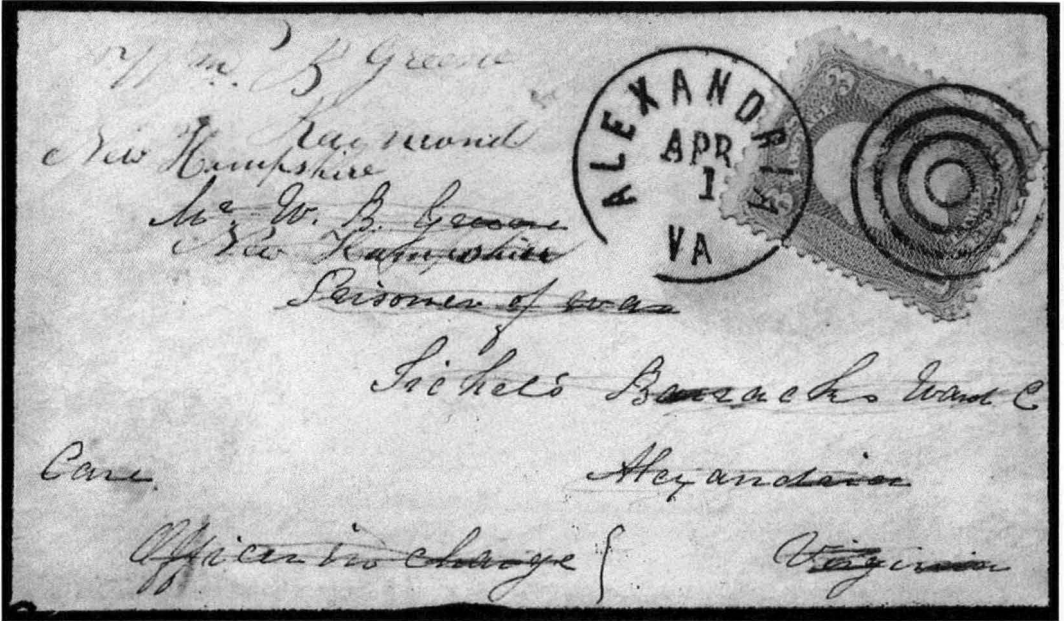 Wm. B Greene
Raymond
New Hampshire
Mr. W. B. Greene
New Hampshire
Prisoner of war
Sickels Barracks Ward C
Care
Alexandria
Officer in charge {
Virginia
ALEXANDRIA
APR
1
VA